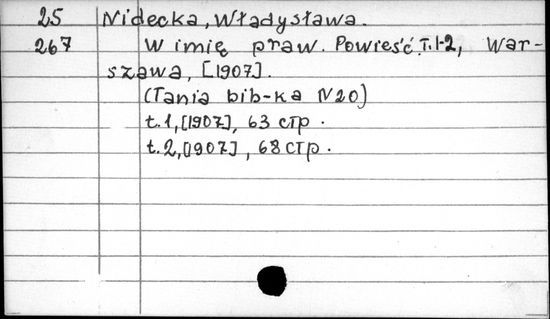 25 Nidecka, Władysława.
267 W imię praw. Powieść. T. 1-2, War-
szawa, [1907].
(Tania bib-ka N20)
t. 1, [1907], 63 стр.
t. 2, [1907], 68 стр.